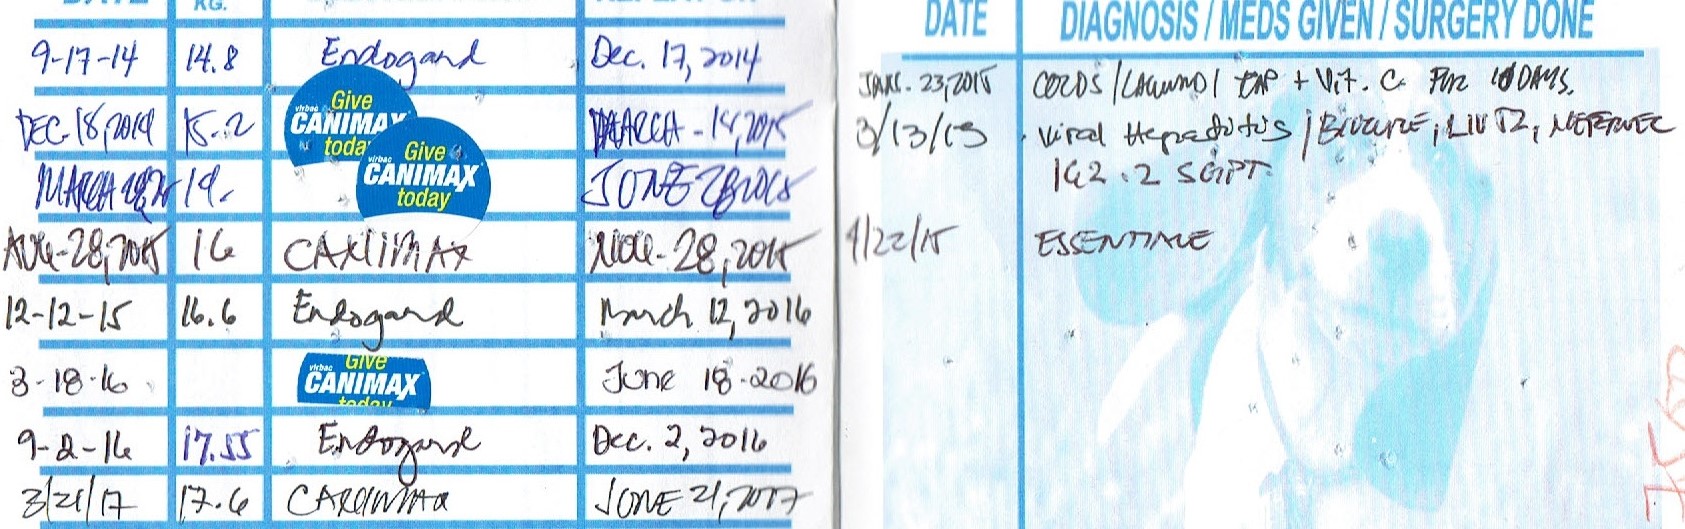 DATE KG. REPEAT ON
9-17-14 14.8 Endogard Dec. 17, 2014
virbac Give CANIMAX today
DEC-18,2014 15.2 MARCH-14,2015
virbac Give CANIMAX today
MARCH 19. JUNE 28 2015
AUG-28,2015 16 CANIMAX NOV-28,2015
12-12-15 16.6 Endogard March 12, 2016
3-18-16 virbac Give CANIMAX today June 18-2016
9-2-16 17.55 Endogard Dec. 2, 2016
3/21/17 17.6 CANIMAX JUNE 21, 2017
DATE DIAGNOSIS / MEDS GIVEN / SURGERY DONE
JAN. 23, 2015 COLDS / LAGUNDI CAP + Vit. C FOR 10 DAYS.
3/13/15 Viral Hepatitis / LIV 52, NEFERVEC
1G2 . 2 SGPT
4/22/15 ESSENTIALE